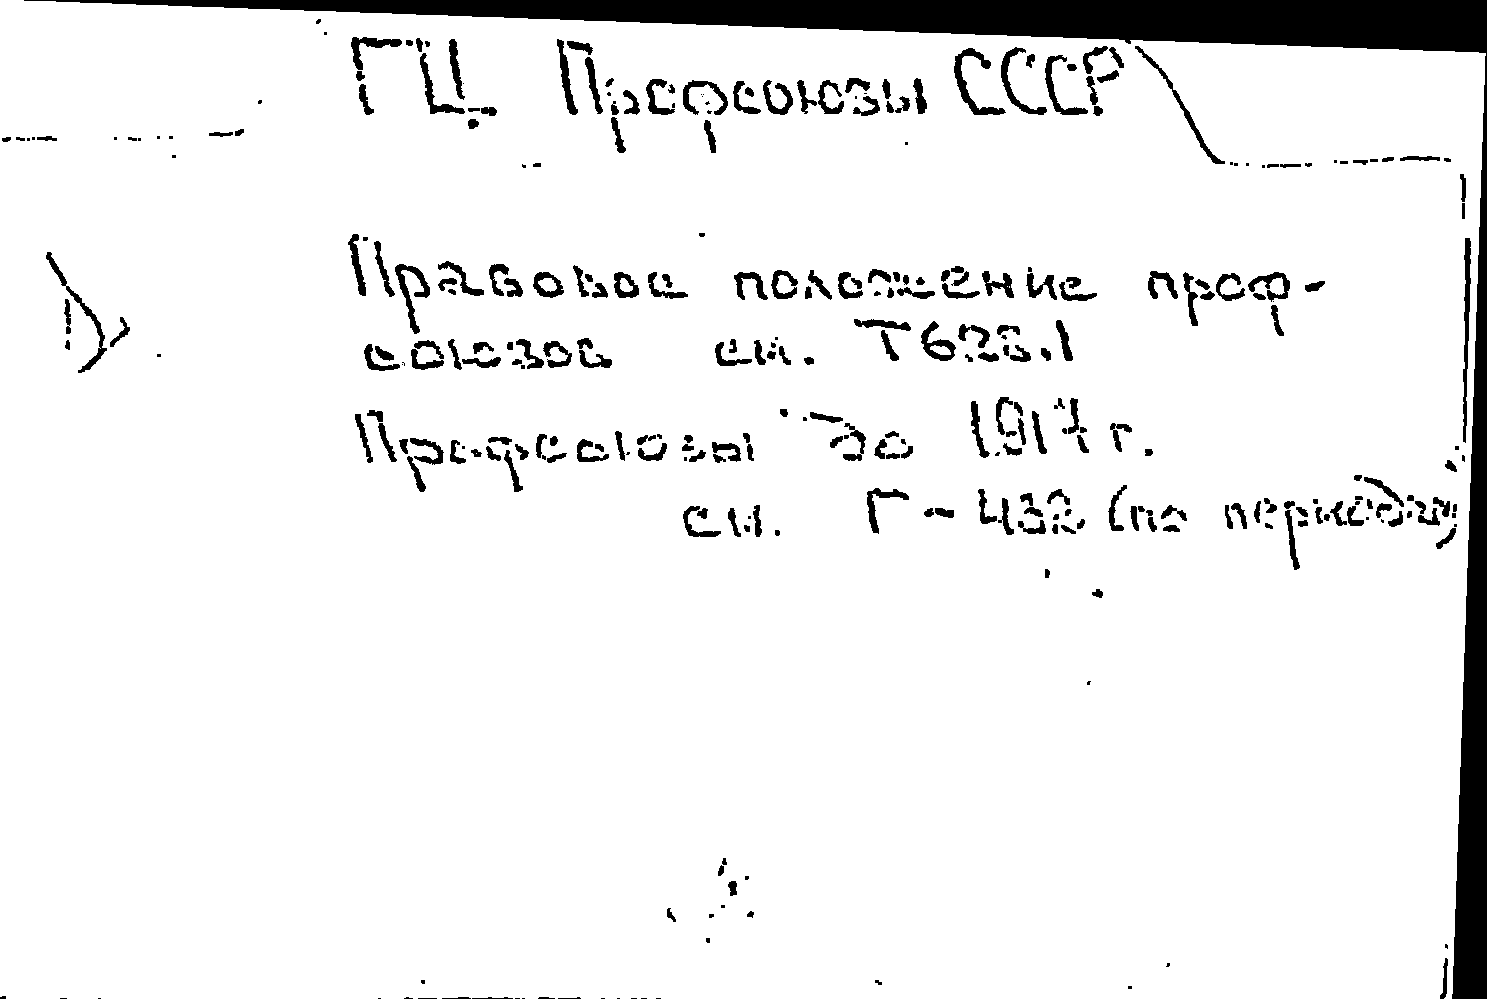 ГЦ Профсоюзы СССР
Правовое положение проф-
союзов см. Т628.1
Профсоюзы до 1917 г.
см. Г-432 (по периодам)